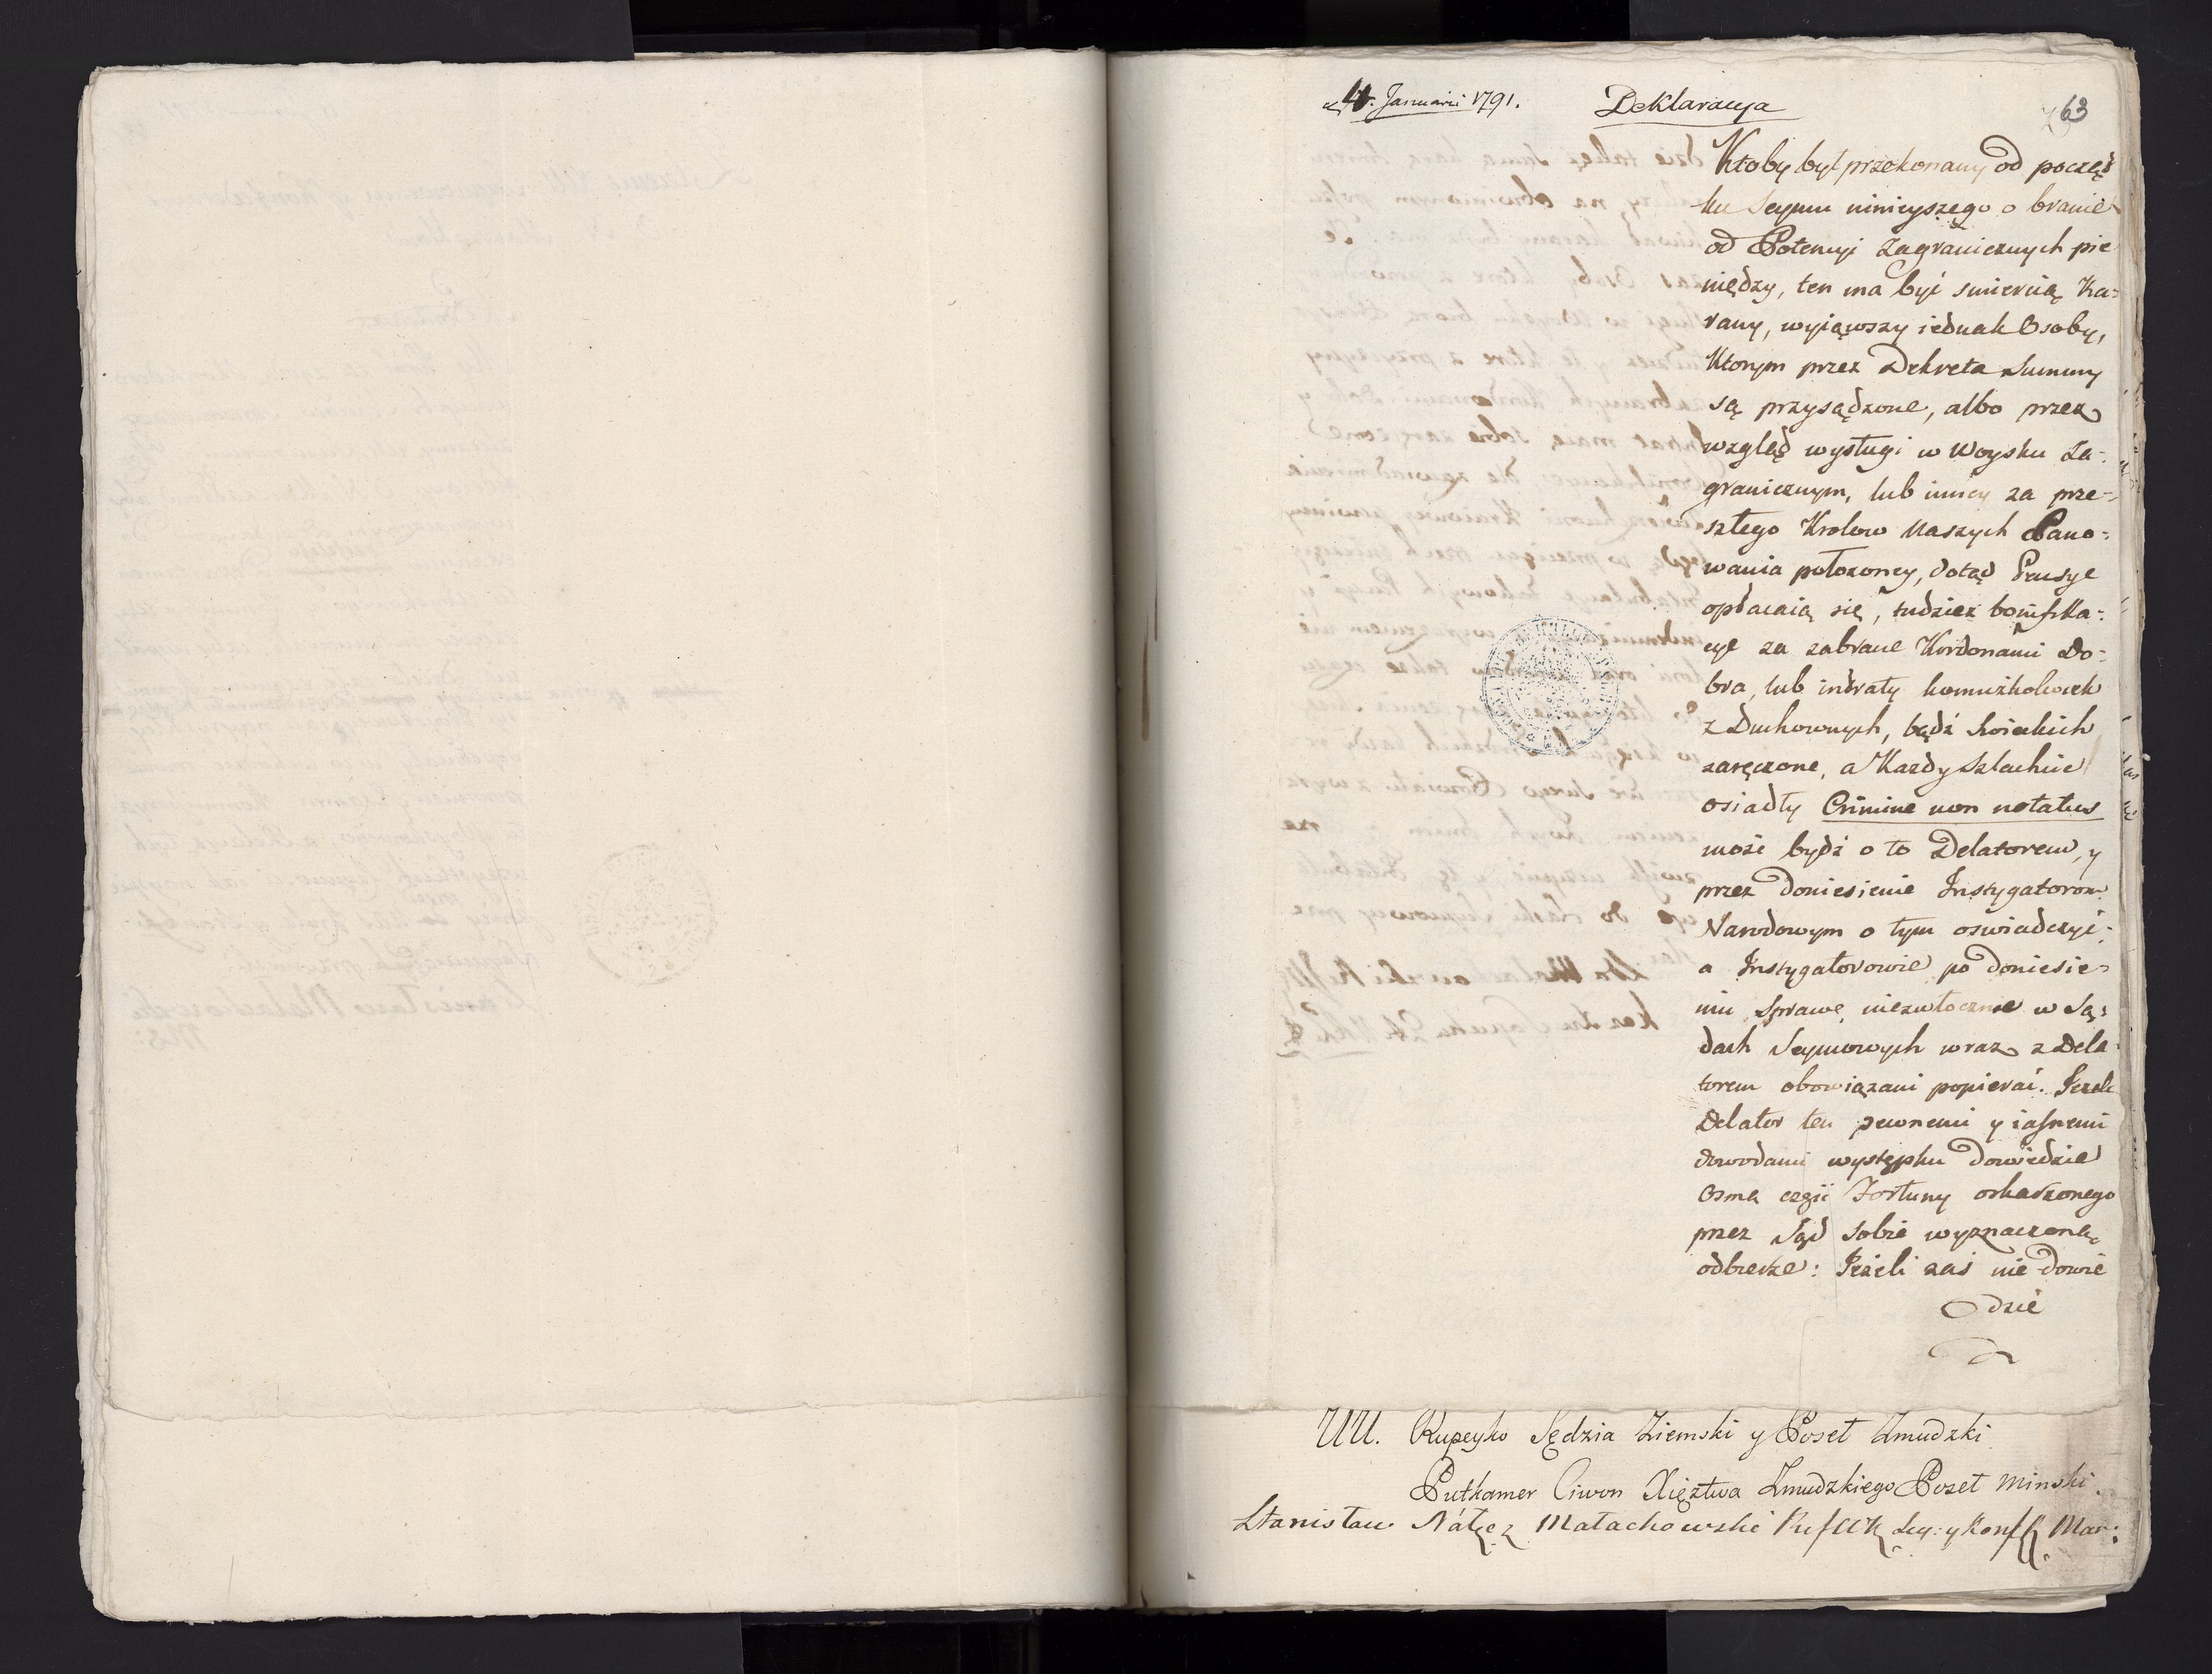 d. 4. Januarii 1791. Deklaracya 63
Ktoby był przekonany od począt
ku Seymu ninieyszego o branie
od Potencyi Zagranicznych pie
niędzy, ten ma być smiercią Ka:
rany, wyiąwszy iednak Osoby,
Ktorym przez Dekreta Summy
są przysądzone, albo przez
wzgląd wysługi w Woysku Za:
granicznym, lub inney za prze:
szłego Krolow Naszych Pano:
wania położoney, dotąd Pensye
opłacaią się, tudziez bonifika:
cye za zabrane Kordonami Do:
bra, lub intraty komużkolwiek
z Duchownych, bądź Swieckich
zaręczone, a Kazdy Szlachcic
osiadły Crimine non notatus
może bydź o to Delatorem, y
przez doniesienie Instygatorom
Narodowym o tym oswiadczyć;
a Instygatorowie po doniesie:
niu Sprawę niezwłocznie w Są:
dach Seymowych wraz z Dela:
torem obowiązani popierać. Jeżeli
Delator ten pewnemi y iasnemi
dowodami występku dowiedzie
osmą częśc Fortuny oskarżonego
przez Sąd sobie wyznaczoną
odbierze: Jeżeli zaś nie dowie
dzie
UU. Rupeyko Sędzia Ziemski y Poseł Zmudzki
Putkamer Ciwon Xięztwa Zmudzkiego Poseł Minski.
Stanisław Nałęcz Małachowski Ref WK Sey: y Konf Mar: